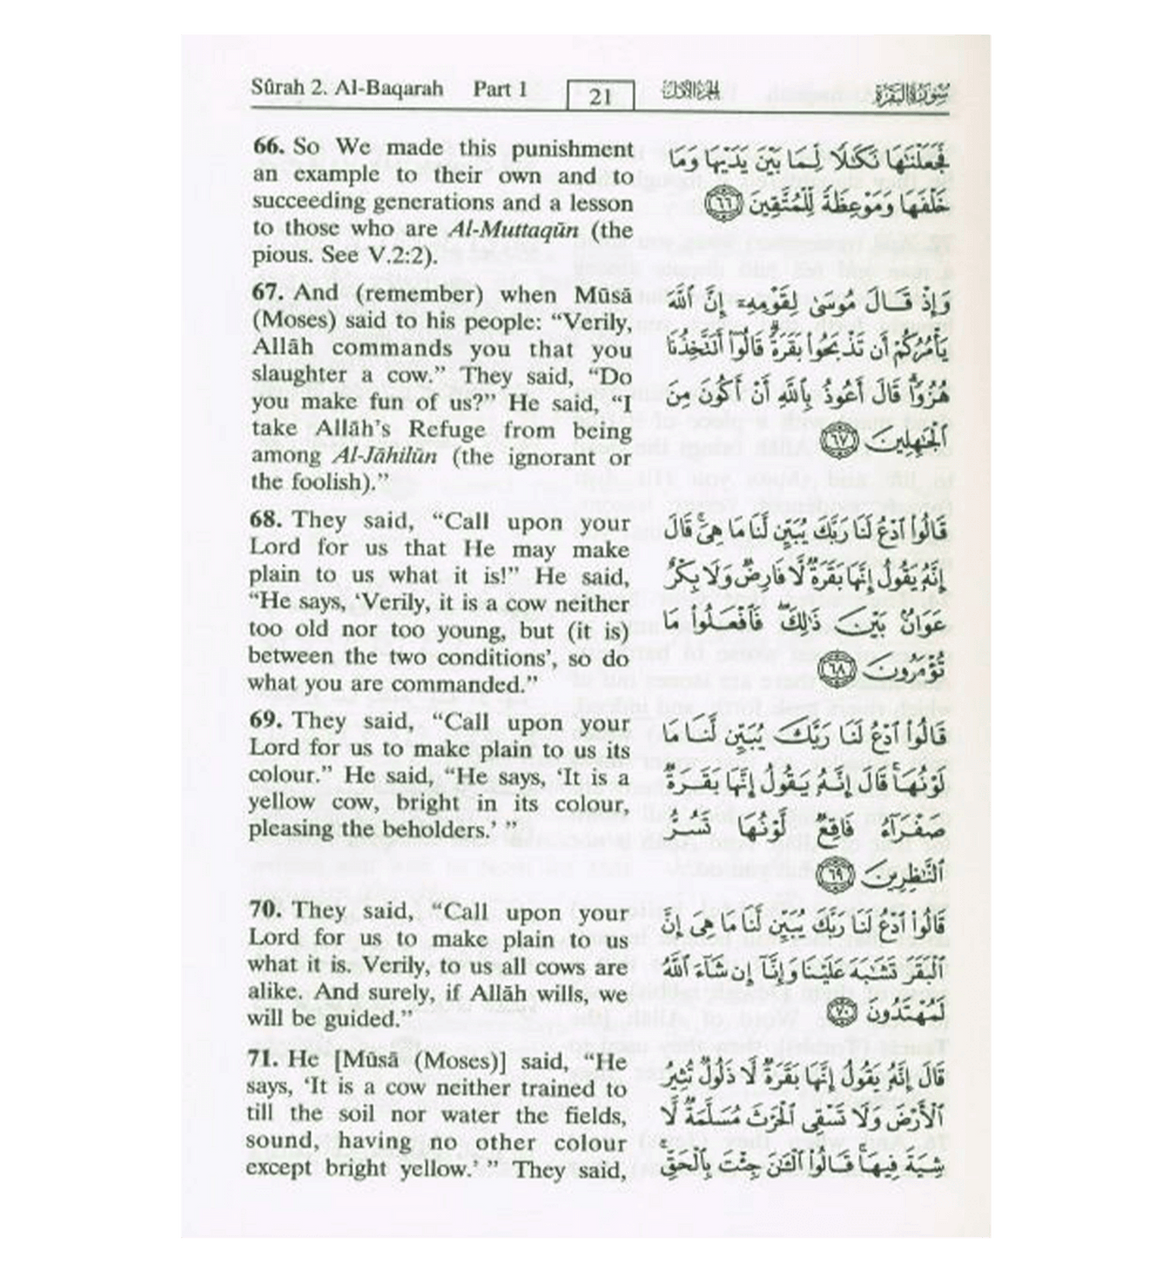 Sûrah 2. Al-Baqarah Part 1 21 الجزء الأول سورة البقرة
66. So We made this punishment
an example to their own and to
succeeding generations and a lesson
to those who are Al-Muttaqūn (the
pious. See V.2:2).
67. And (remember) when Mūsā
(Moses) said to his people: “Verily,
Allāh commands you that you
slaughter a cow.” They said, “Do
you make fun of us?” He said, “I
take Allāh’s Refuge from being
among Al-Jāhilūn (the ignorant or
the foolish).”
68. They said, “Call upon your
Lord for us that He may make
plain to us what it is!” He said,
“He says, ‘Verily, it is a cow neither
too old nor too young, but (it is)
between the two conditions’, so do
what you are commanded.”
69. They said, “Call upon your
Lord for us to make plain to us its
colour.” He said, “He says, ‘It is a
yellow cow, bright in its colour,
pleasing the beholders.’ ”
70. They said, “Call upon your
Lord for us to make plain to us
what it is. Verily, to us all cows are
alike. And surely, if Allāh wills, we
will be guided.”
71. He [Mūsā (Moses)] said, “He
says, ‘It is a cow neither trained to
till the soil nor water the fields,
sound, having no other colour
except bright yellow.’ ” They said,
فَجَعَلْنَٰهَا نَكَٰلًا لِّمَا بَيْنَ يَدَيْهَا وَمَا
خَلْفَهَا وَمَوْعِظَةً لِّلْمُتَّقِينَ ٦٦
وَإِذْ قَالَ مُوسَىٰ لِقَوْمِهِۦٓ إِنَّ ٱللَّهَ
يَأْمُرُكُمْ أَن تَذْبَحُوا۟ بَقَرَةً ۖ قَالُوٓا۟ أَتَتَّخِذُنَا
هُزُوًا ۖ قَالَ أَعُوذُ بِٱللَّهِ أَنْ أَكُونَ مِنَ
ٱلْجَٰهِلِينَ ٦٧
قَالُوا۟ ٱدْعُ لَنَا رَبَّكَ يُبَيِّن لَّنَا مَا هِىَ ۚ قَالَ
إِنَّهُۥ يَقُولُ إِنَّهَا بَقَرَةٌ لَّا فَارِضٌ وَلَا بِكْرٌ
عَوَانٌۢ بَيْنَ ذَٰلِكَ ۖ فَٱفْعَلُوا۟ مَا
تُؤْمَرُونَ ٦٨
قَالُوا۟ ٱدْعُ لَنَا رَبَّكَ يُبَيِّن لَّنَا مَا
لَوْنُهَا ۚ قَالَ إِنَّهُۥ يَقُولُ إِنَّهَا بَقَرَةٌ
صَفْرَآءُ فَاقِعٌ لَّوْنُهَا تَسُرُّ
ٱلنَّٰظِرِينَ ٦٩
قَالُوا۟ ٱدْعُ لَنَا رَبَّكَ يُبَيِّن لَّنَا مَا هِىَ إِنَّ
ٱلْبَقَرَ تَشَٰبَهَ عَلَيْنَا وَإِنَّآ إِن شَآءَ ٱللَّهُ
لَمُهْتَدُونَ ٧٠
قَالَ إِنَّهُۥ يَقُولُ إِنَّهَا بَقَرَةٌ لَّا ذَلُولٌ تُثِيرُ
ٱلْأَرْضَ وَلَا تَسْقِى ٱلْحَرْثَ مُسَلَّمَةٌ لَّا
شِيَةَ فِيهَا ۚ قَالُوا۟ ٱلْـَٰٔنَ جِئْتَ بِٱلْحَقِّ ۚ